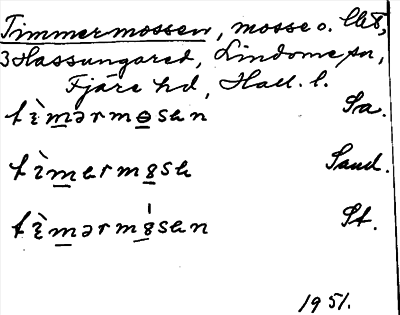 Timmermossen, mosse o.
3 Hassungared, Lindome sn,
Fjäre hd, Hall. l.
tìmərmɵsen Sa.
tìmermɵse Sand.
tìmərmɵsen St.
1951.